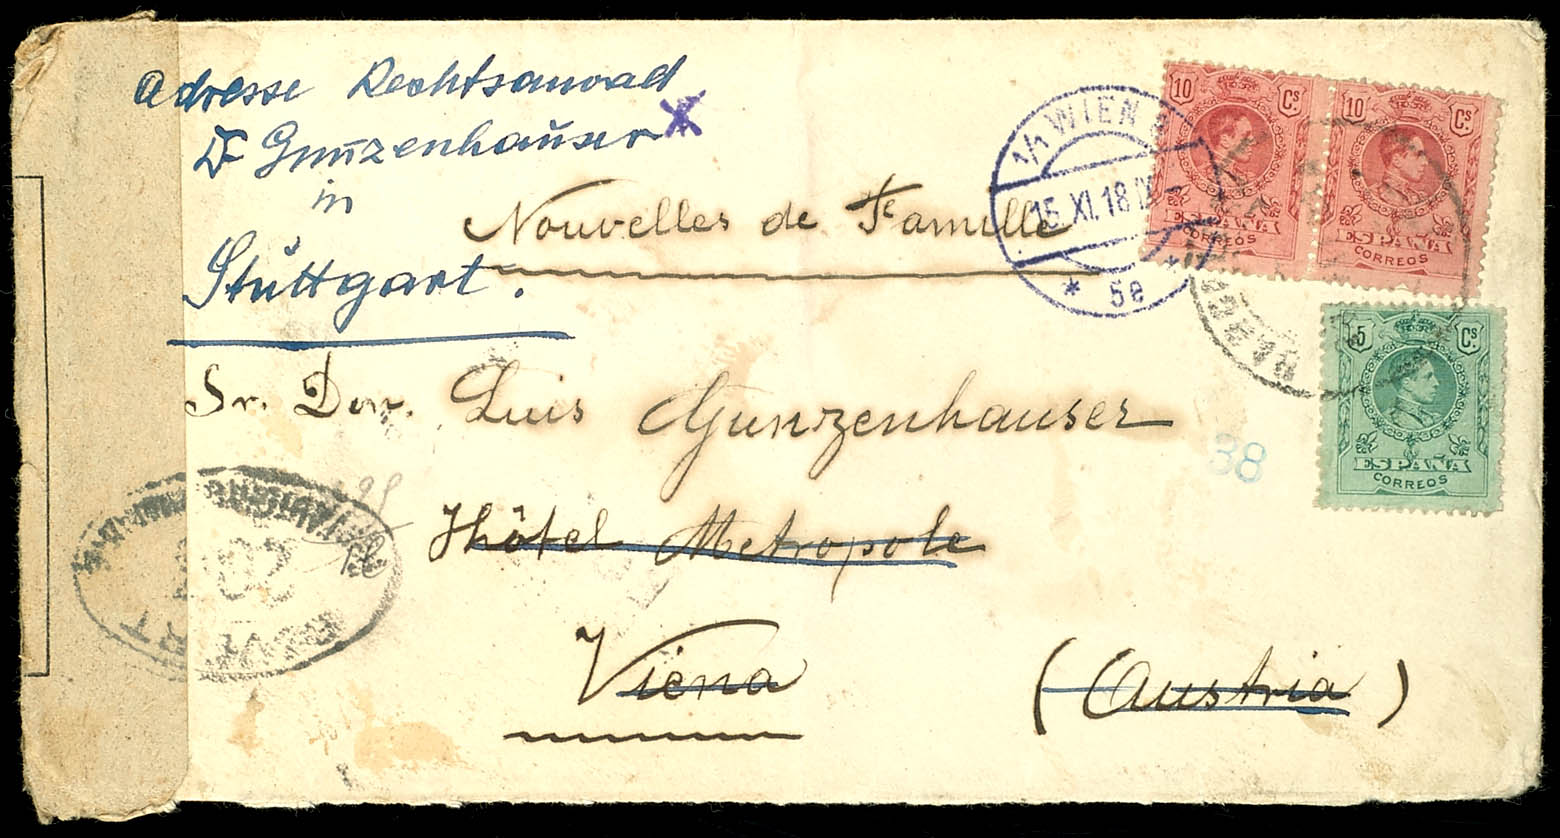 Adresse Rechtsanwalt
Dr Gunzenhauser X
in
Stuttgart.
Nouvelles de Famille
1/1 WIEN
15. XI. 18 IX
* 5e *
10 Cs
ESPAÑA
CORREOS
10 Cs.
ESPAÑA
CORREOS
5 Cs.
ESPAÑA
CORREOS
Sr. Don. Luis Gunzenhauser
38
Hôtel Metropole
Viena (Austria)